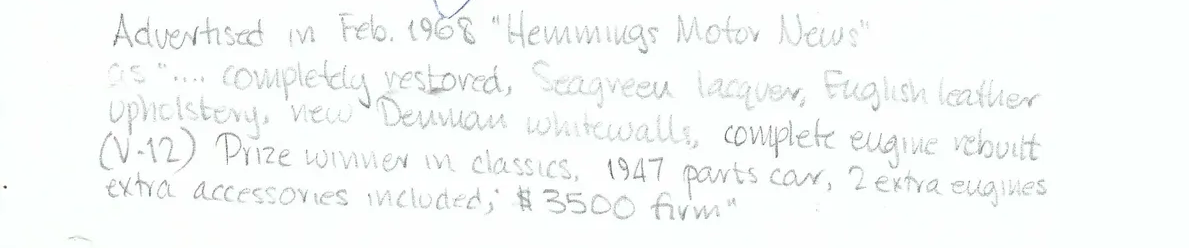 Advertised in Feb. 1968 "Hemmings Motor News"
as ".... completely restored, Seagreen lacquer, English leather
upholstery, new Denman whitewalls, complete engine rebuilt
(V-12) Prize winner in classics, 1947 parts car, 2 extra engines
extra accessories included; $3500 firm"